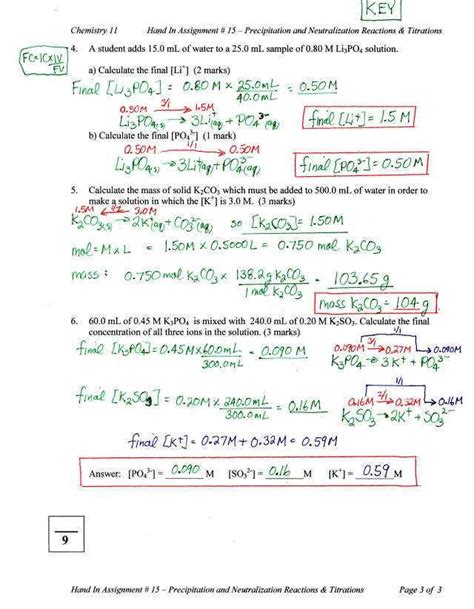 KEY
Chemistry 11 Hand In Assignment # 15 – Precipitation and Neutralization Reactions & Titrations
FC=ICxIV
FV
4. A student adds 15.0 mL of water to a 25.0 mL sample of 0.80 M Li₃PO₄ solution.
a) Calculate the final [Li⁺] (2 marks)
Final [Li₃PO₄] = 0.80 M x 25.0mL = 0.50M
40.0mL
0.50M 3/1 → 1.5M
Li₃PO₄(s) → 3Li⁺(aq) + PO₄³⁻(aq)
final [Li⁺] = 1.5 M
b) Calculate the final [PO₄³⁻] (1 mark)
0.50M 1/1 → 0.50M
Li₃PO₄(s) → 3Li⁺(aq) + PO₄³⁻(aq)
final [PO₄³⁻] = 0.50M
5. Calculate the mass of solid K₂CO₃ which must be added to 500.0 mL of water in order to
make a solution in which the [K⁺] is 3.0 M. (3 marks)
1.5M ← 1/2 3.0M
K₂CO₃(s) → 2K⁺(aq) + CO₃²⁻(aq) so [K₂CO₃] = 1.50M
mol = M x L = 1.50M x 0.5000L = 0.750 mol K₂CO₃
mass: 0.750 mol K₂CO₃ x 138.2g K₂CO₃ = 103.65g
1 mol K₂CO₃
mass K₂CO₃ = 104 g
6. 60.0 mL of 0.45 M K₃PO₄ is mixed with 240.0 mL of 0.20 M K₂SO₃. Calculate the final
concentration of all three ions in the solution. (3 marks)
final [K₃PO₄] = 0.45M x 60.0mL = 0.090 M
300.0mL
1/1
0.090M 3/1 → 0.27M → 0.090M
K₃PO₄ → 3K⁺ + PO₄³⁻
final [K₂SO₃] = 0.20M x 240.0mL = 0.16M
300.0mL
1/1
0.16M 2/1 → 0.32M → 0.16M
K₂SO₃ → 2K⁺ + SO₃²⁻
final [K⁺] = 0.27M + 0.32M = 0.59M
Answer: [PO₄³⁻] = 0.090 M [SO₃²⁻] = 0.16 M [K⁺] = 0.59 M
9
Hand In Assignment # 15 – Precipitation and Neutralization Reactions & Titrations Page 3 of 3